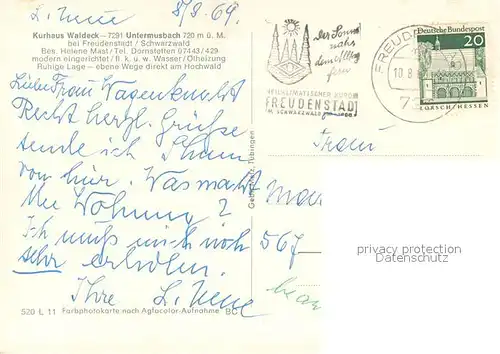 L. Neue 8/8.69.
Kurhaus Waldeck – 7291 Untermusbach 720 m ü. M.
bei Freudenstadt / Schwarzwald
Bes. Helene Mast / Tel. Dornstetten 07443/429
modern eingerichtet / fl. k. u. w. Wasser / Ölheizung
Ruhige Lage – ebene Wege direkt am Hochwald
Liebe Frau Wagenknecht
Recht herzl. Grüße
sende ich Ihnen
von hier. Was macht
Ihre Wohnung?
Ich muß mich noch
sehr erholen.
Ihre L. Neue
520 L 11 Farbphotokarte nach Agfacolor-Aufnahme BC
Tübingen
Der Sonne
nahe
dem Alltag
fern
HEILKLIMATISCHER KURORT
FREUDENSTADT
IM SCHWARZWALD
FREUDEN
10.8
Deutsche Bundespost
20
LORSCH/HESSEN
Frau
567
privacy protection
Datenschutz